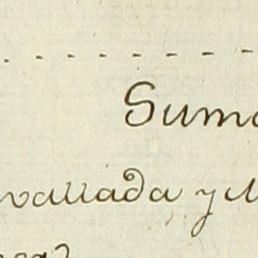 Suma
vallada y M